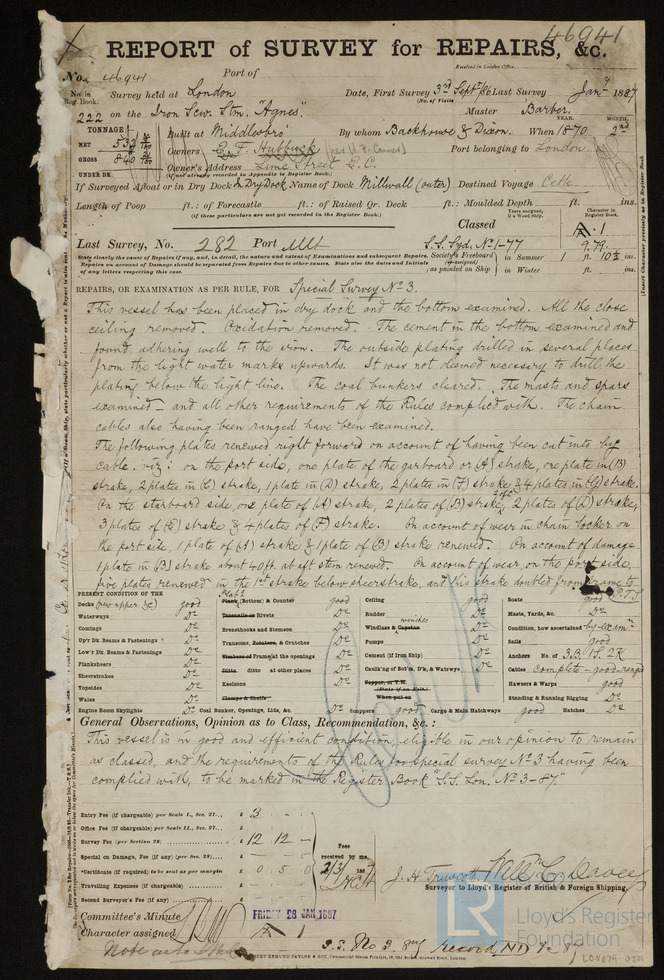 46941
REPORT of SURVEY for REPAIRS, &c.
Received in London Office,
No. 46941 Port of
No. in Reg. Book. Survey held at London Date, First Survey 3rd Septr 86 Last Survey Jany 1887
(No. of Visits
222 on the Iron Scw. Stm. "Agnes" Master Barber.
TONNAGE Built at Middlesbro' By whom Backhouse & Dixon. When 1870 2nd
YEAR. MONTH.
NET 532 Owners E. F. Hubbuck
GROSS 840 Owner's Address Lime Street E.C. Port belonging to London
UNDER DK. (if not already recorded in Appendix to Register Book.)
If Surveyed Afloat or in Dry Dock Dry Dock Name of Dock Millwall (outer) Destined Voyage Cette
Length of Poop ft.: of Forecastle ft.: of Raised Qr. Deck ft.: Moulded Depth ft. ins.
(if these particulars are not yet recorded in the Register Book.)
Years assigned, if a Wood Ship. Character in Register Book,
Classed A 1
Last Survey, No. 282 Port Mlt S.S. Syd. No 1-77 9.79
State clearly the cause of Repairs if any, and, in detail, the nature and extent of Examinations and subsequent Repairs.
Repairs on account of Damage should be separated from Repairs due to other causes. State also the dates and Initials of any letters respecting this case.
Society's Freeboard (if assigned) as painted on Ship in Summer 1 ft. 10½ ins.
in Winter ft. ins.
REPAIRS, OR EXAMINATION AS PER RULE, FOR Special Survey No 3.
This vessel has been placed in dry dock and the bottom examined. All the close
ceiling removed. Oxidation removed. The cement in the bottom examined and
found adhering well to the iron. The outside plating drilled in several places
from the light water marks upwards. It was not deemed necessary to drill the
plating below the light line. The coal bunkers cleared. The masts and spars
examined - and all other requirements of the Rules complied with. The chain
cables also having been ranged have been examined.
The following plates renewed right forward on account of having been cut into by
cable. viz: on the port side, one plate of the garboard or (A) strake, one plate in (B)
strake, 2 plates in (C) strake, 1 plate in (D) strake, 2 plates in (F) strake & 4 plates in (G) strake.
On the starboard side, one plate of (A) strake, 2 plates of (B) strake, 2 plates of (D) strake,
3 plates of (E) strake & 4 plates of (F) strake. On account of wear in chain locker on
the port side, 1 plate of (A) strake & 1 plate of (B) strake renewed. On account of damage
1 plate in (B) strake about 40 ft. abaft stem renewed. On account of wear, on the port side,
five plates renewed in the 1st strake below sheerstrake, and this strake doubled from frame to
P.T.O.
PRESENT CONDITION OF THE
Decks (new upper &c) good
Waterways Do
Comings Do
Up'r Dk. Beams & Fastenings Do
Low'r Dk. Beams & Fastenings Do
Planksheers Do
Sheerstrakes Do
Topsides Do
Wales Do
Engine Room Skylights Do
Plank (Bottom) & Counter good
Treenails or Rivets Do
Breasthooks and Stemson Do
Transoms, Pointers, & Crutches Do
Timbers or Frames at the openings Do
Ditto ditto at other places Do
Keelsons Do
Clamps & Shelfs
Coal Bunker, Openings, Lids, &c. Do
Ceiling good
Rudder Do
Windlass & Capstan Do
Pumps Do
Cement (if Iron Ship) Do
Caulk'ng of Bot'm, D'k, & Watrwys Do
Copper, or Y.M.
(State if on Felt)
When put on
Scuppers good Cargo & Main Hatchways good Hatches Do
Boats good
Masts, Yards, &c. Do
Condition, how ascertained by exam
Sails good
Anchors No. of 3B. 1S. 2K
Cables Complete - good - ranged
Hawsers & Warps good
Standing & Running Rigging Do
General Observations, Opinion as to Class, Recommendation, &c.:
This vessel is in good and efficient condition, eligible in our opinion to remain
as classed, and the requirements of the Rules for special survey No 3 having been
complied with, to be marked in the Register Book "S.S. Lon. No 3-87."
Entry Fee (if chargeable) per Scale I., Sec. 27... £ 3 - -
Office Fee (if chargeable) per Scale II., Sec. 27... £
Survey Fee (per Section 28) £ 12 12 -
Special on Damage, Fee (if any) (per Sec. 28) £
*Certificate (if required) to be sent as per margin £ 0 5 0
Travelling Expenses (if chargeable) £
Second Surveyor's Fee (if any) £
Fees received by me,
J. H. Truscott Wm. C. Davey
Surveyor to Lloyd's Register of British & Foreign Shipping.
Committee's Minute FRIDAY 28 JAN 1887
Character assigned A 1
S.S. No 3. 87
Lloyd's Register
Foundation
LR